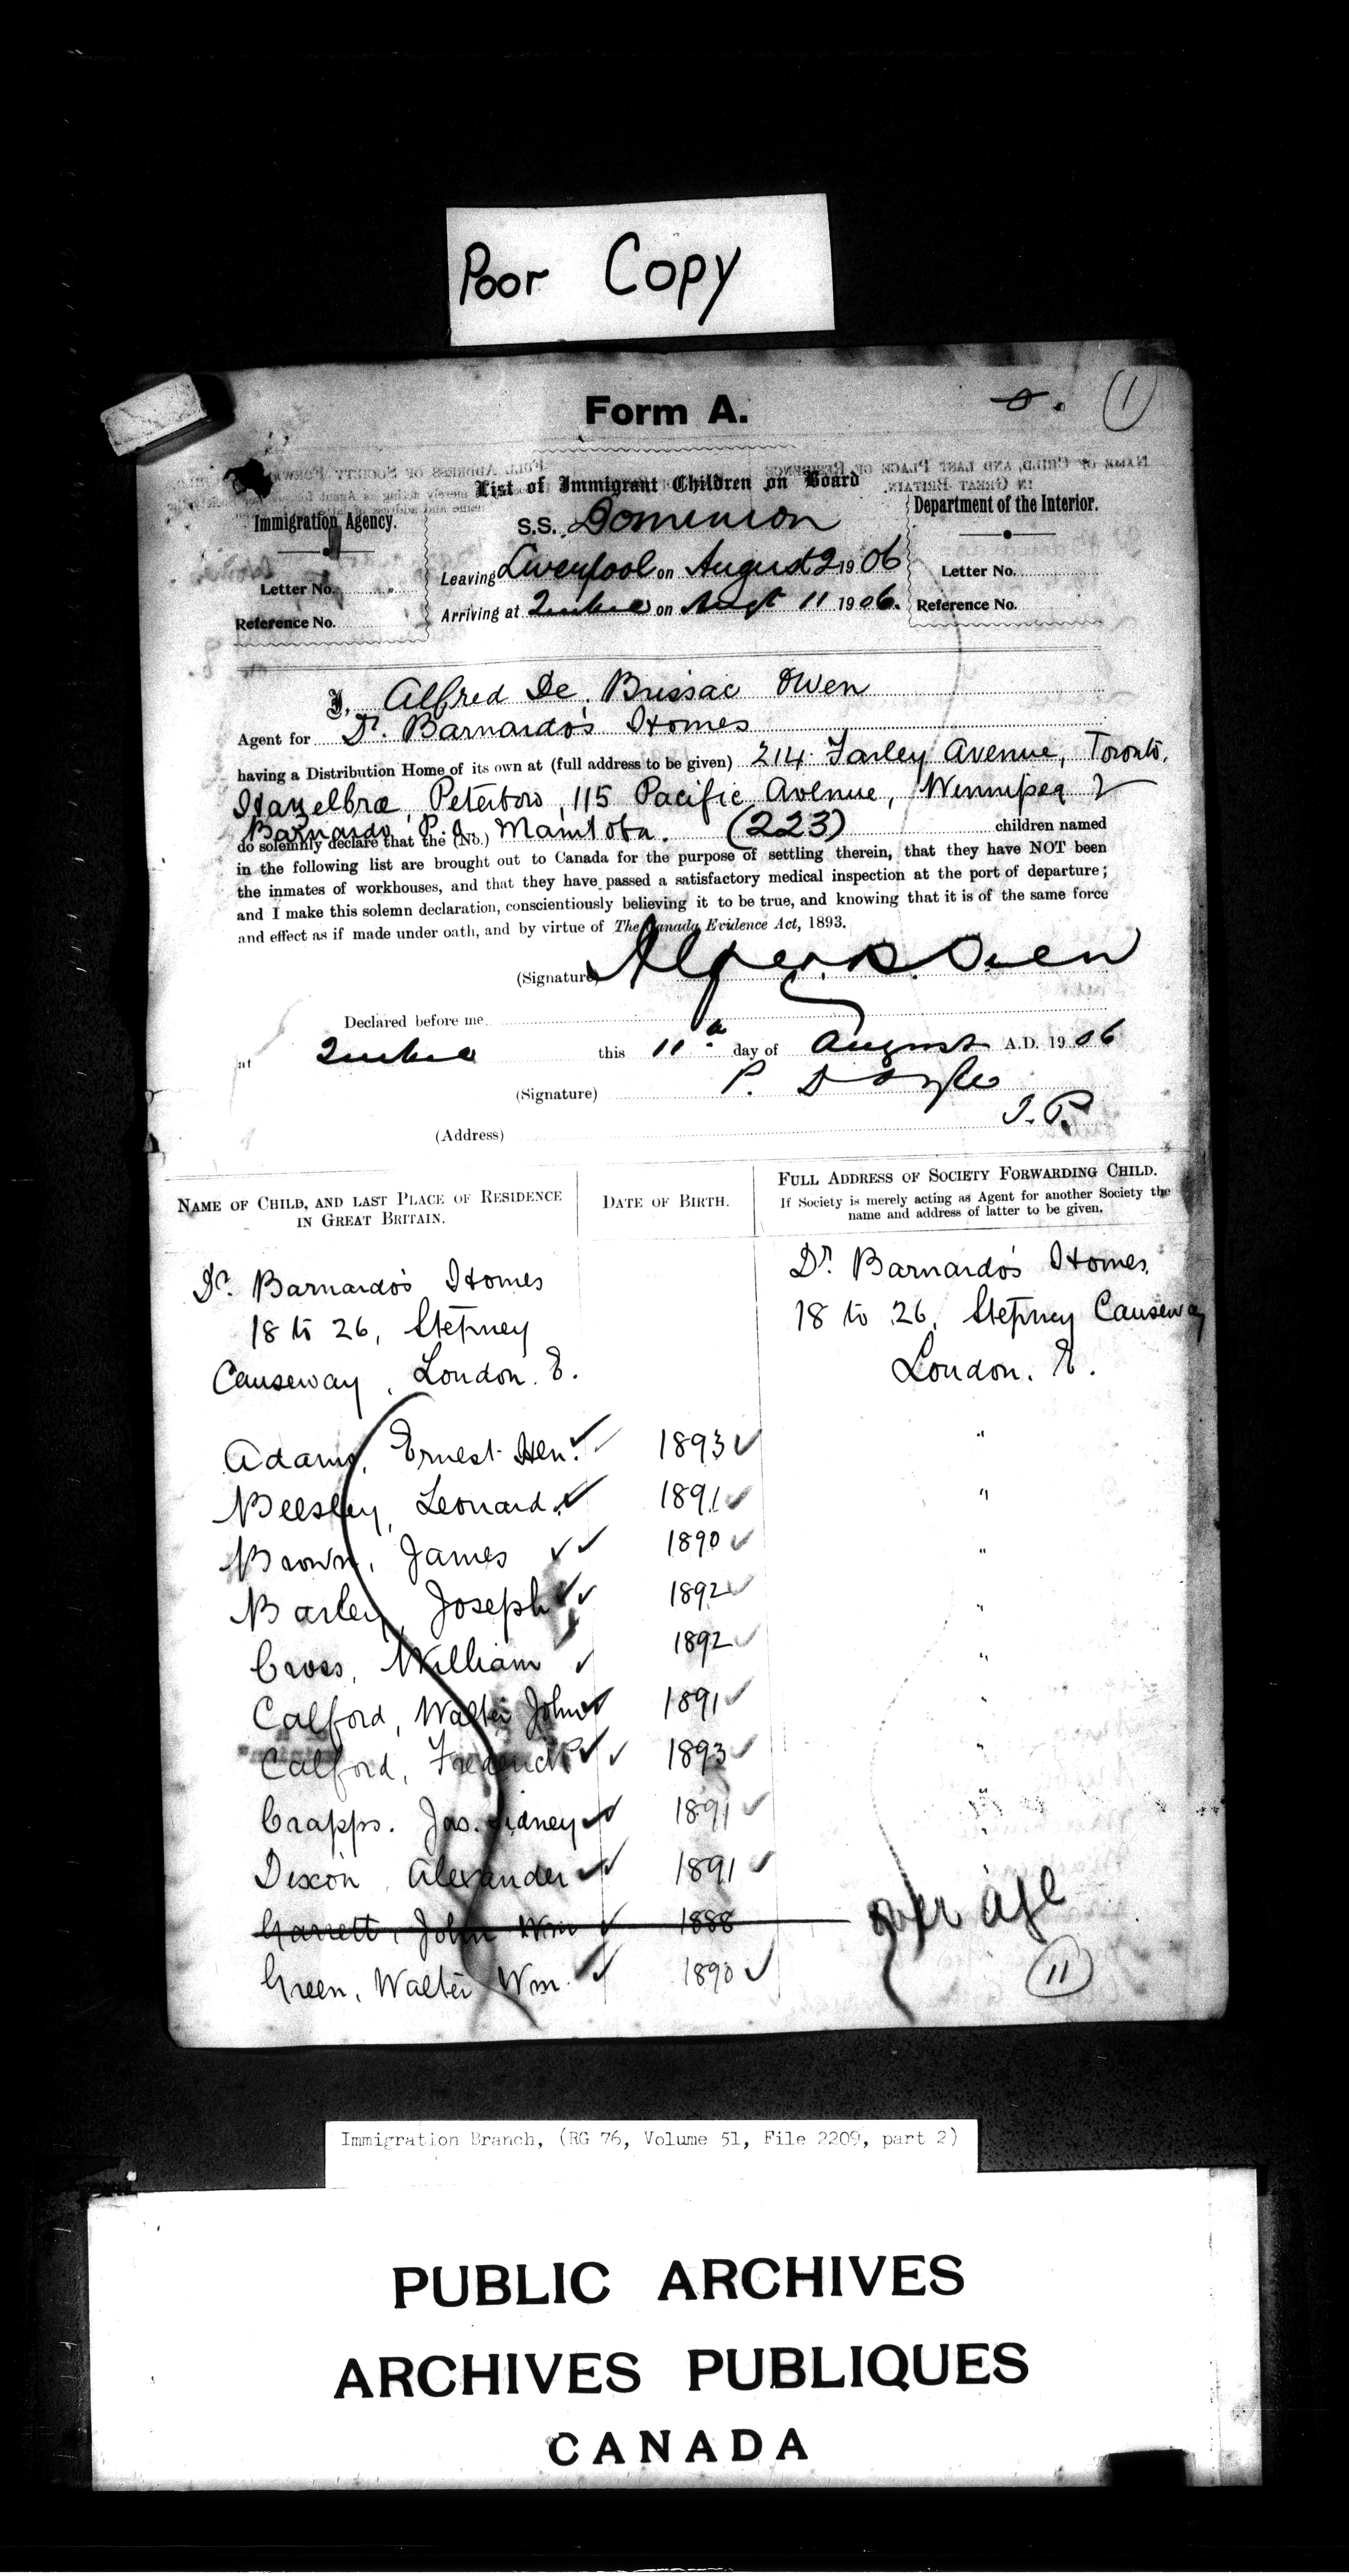 Poor Copy
Form A.
1
List of Immigrant Children on Board
Immigration Agency.
S.S. Dominion
Department of the Interior.
Leaving Liverpool on August 2 1906
Letter No.
Letter No.
Arriving at Quebec on Augt 11 1906.
Reference No.
Reference No.
I, Alfred De Brissac Owen
Agent for Dr. Barnardo's Homes
having a Distribution Home of its own at (full address to be given) 214 Farley Avenue, Toronto,
Hazelbrae, Peterboro, 115 Pacific Avenue, Winnipeg &
Barnardo, P.O. Manitoba. (223)
do solemnly declare that the (No.) children named
in the following list are brought out to Canada for the purpose of settling therein, that they have NOT been
the inmates of workhouses, and that they have passed a satisfactory medical inspection at the port of departure;
and I make this solemn declaration, conscientiously believing it to be true, and knowing that it is of the same force
and effect as if made under oath, and by virtue of The Canada Evidence Act, 1893.
(Signature) Alfred B. Owen
Declared before me
at Quebec this 11th day of August A.D. 1906
(Signature) P. Doyle
J.P.
(Address)
NAME OF CHILD, AND LAST PLACE OF RESIDENCE
IN GREAT BRITAIN.
DATE OF BIRTH.
FULL ADDRESS OF SOCIETY FORWARDING CHILD.
If Society is merely acting as Agent for another Society the
name and address of latter to be given.
Dr. Barnardo's Homes
18 to 26, Stepney
Causeway, London. E.
Dr. Barnardo's Homes,
18 to 26, Stepney Causeway
London. E.
Adams, Ernest Hen. ✓ 1893 ✓ "
Beesley, Leonard. ✓ 1891 ✓ "
Brown, James ✓✓ 1890 ✓ "
Barley, Joseph ✓✓ 1892 ✓ "
Cross, William ✓ 1892 ✓ "
Calford, Walter John ✓ 1891 ✓ "
Calford, Frederick ✓✓ 1893 ✓ "
Crapps. Jas. Sidney ✓ 1891 ✓ "
Dixon, Alexander ✓✓ 1891 ✓ "
Garrett, John Wm ✓ 1888 over age
Green, Walter Wm. ✓ 1890 ✓
11
Immigration Branch, (RG 76, Volume 51, File 2209, part 2)
PUBLIC ARCHIVES
ARCHIVES PUBLIQUES
CANADA